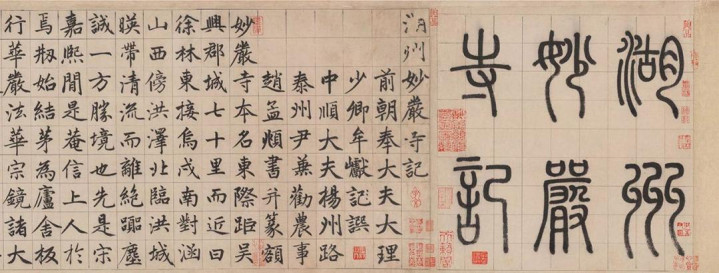 湖州
妙嚴
寺記
湖州妙嚴寺記
前朝奉大夫大理
少卿牟巘記譔
中順大夫楊州路
泰州尹兼勸農事
趙孟頫書并篆額
妙嚴寺本名東際距吳
興郡城七十里而近曰
徐林東接烏戍南對涵
山西傍洪澤北臨洪城
暎帶清流而離絕囂塵
誠一方勝境也先是宋
嘉熙間是菴信上人於
焉刱始結茅為廬舍板
行華嚴法華宗鏡諸大